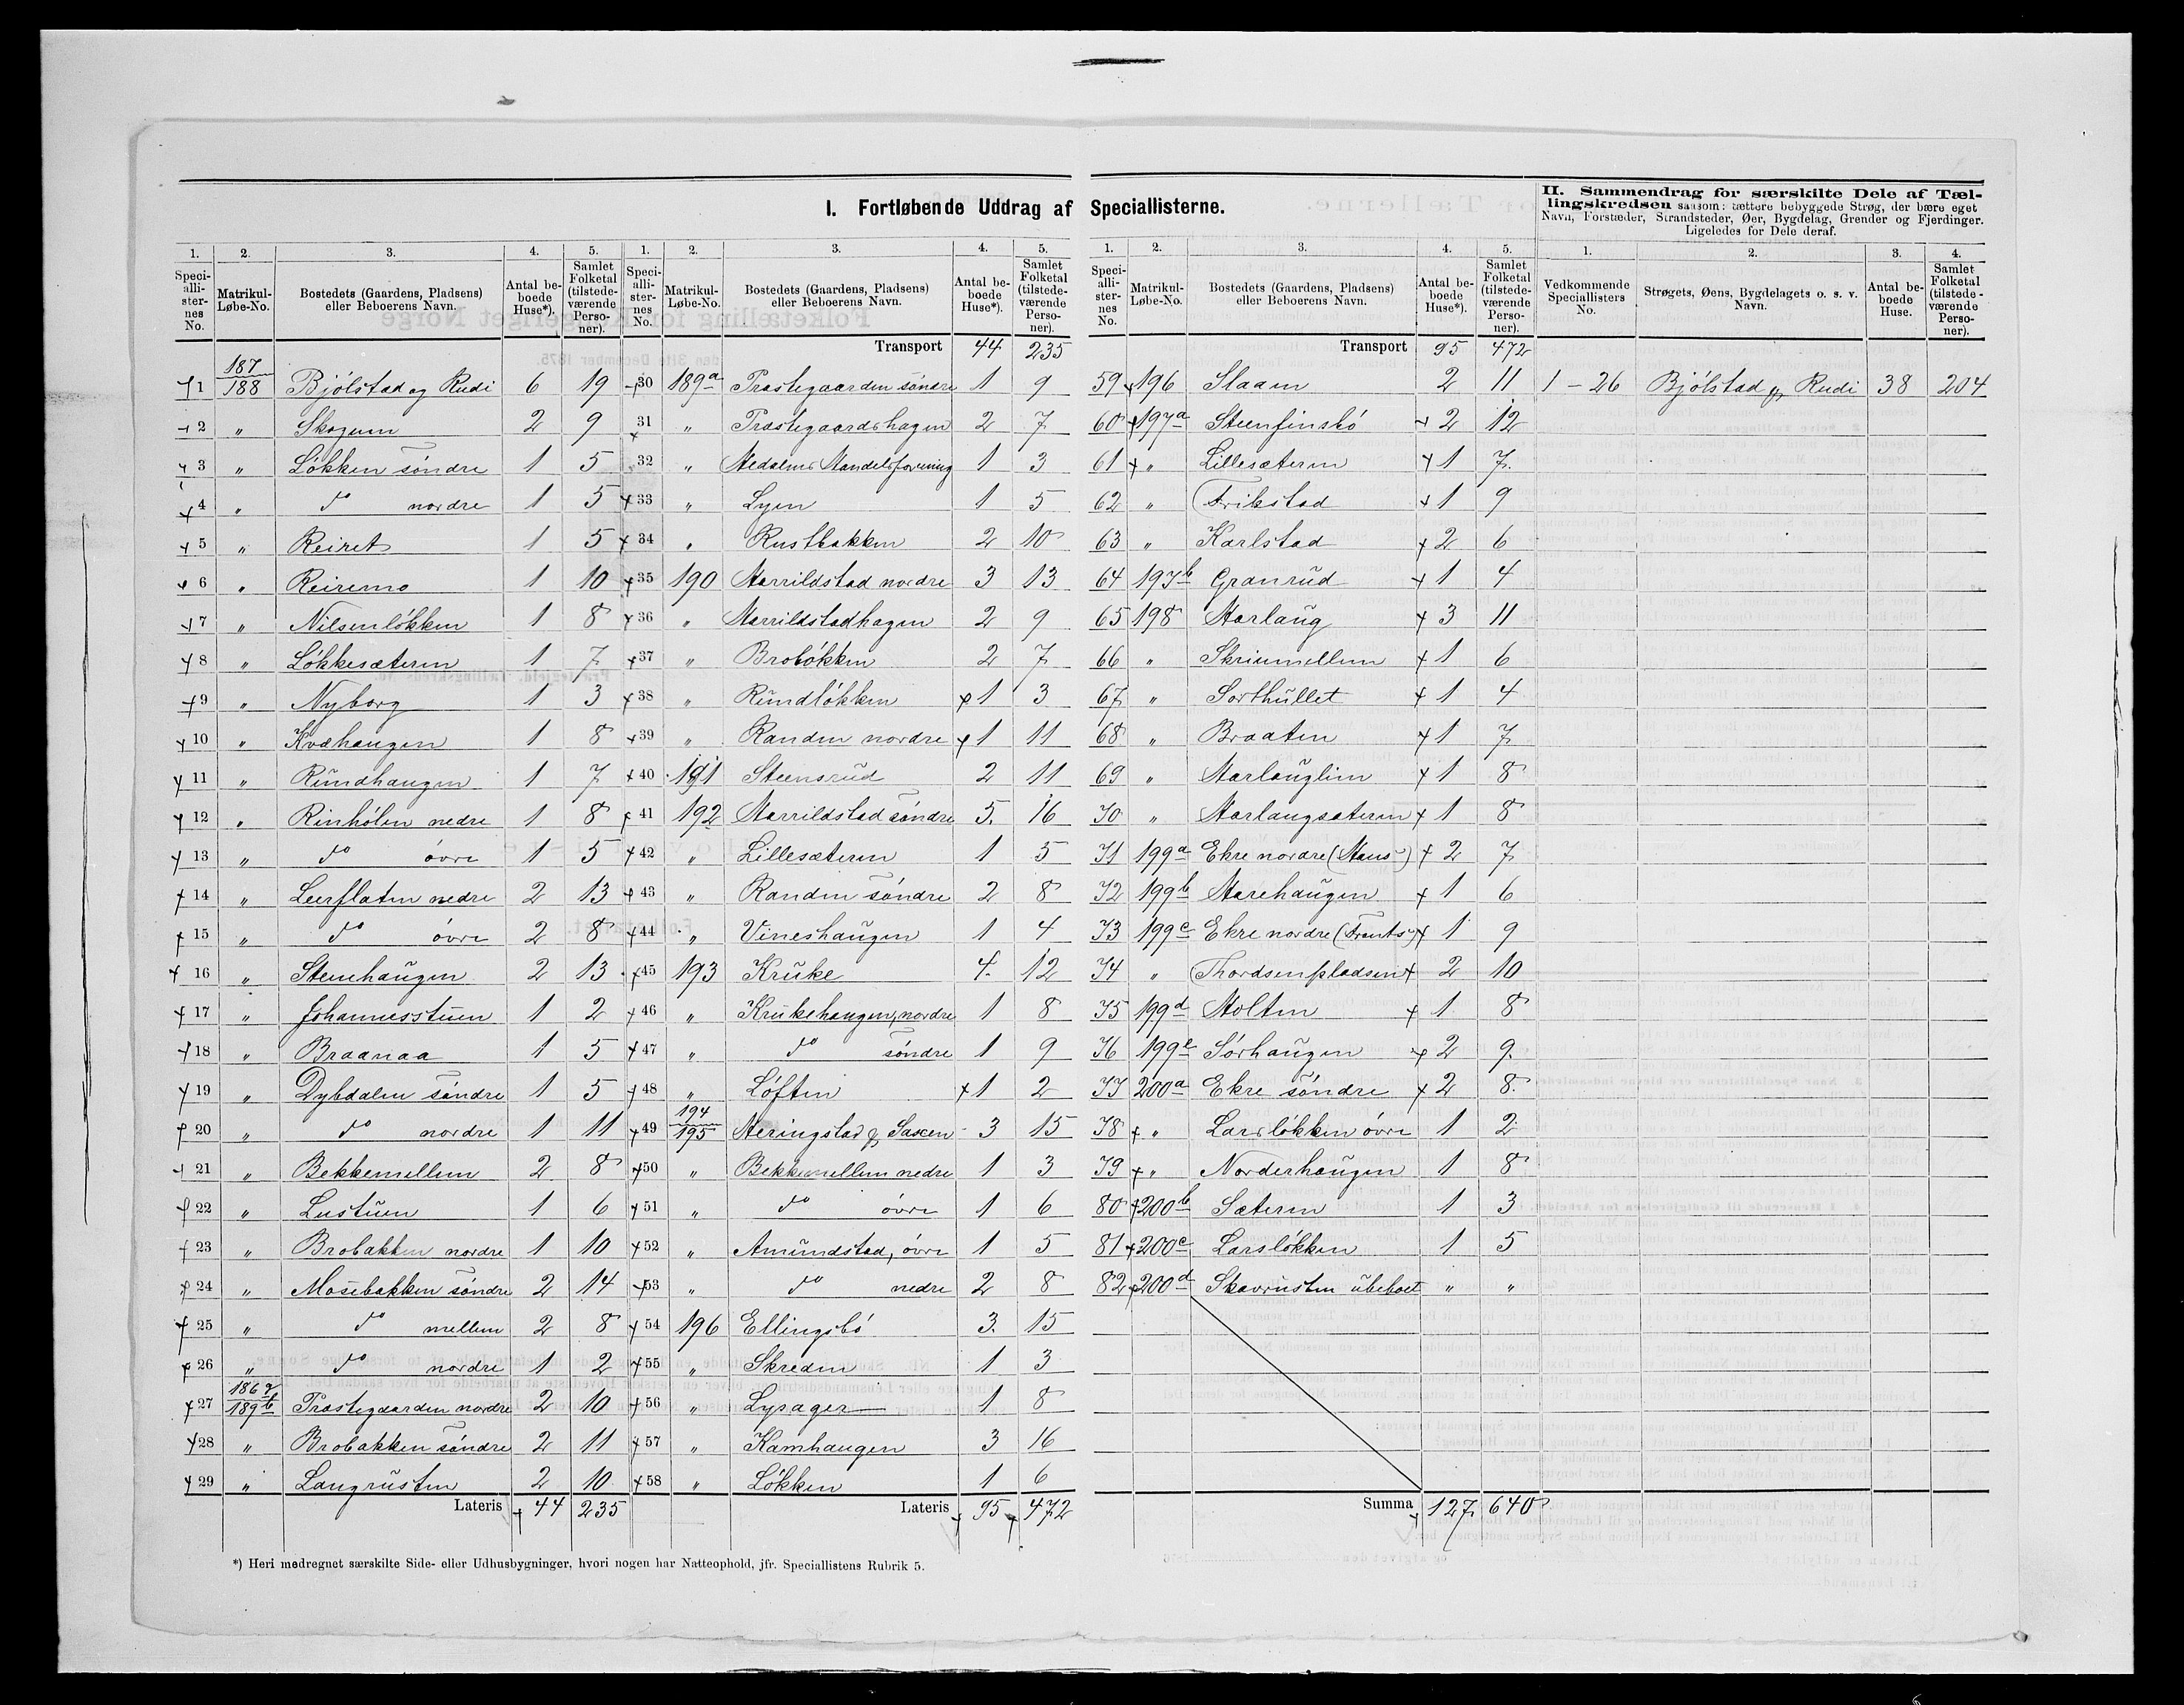 I. Fortløbende Uddrag af Speciallisterne.
1. 2. 3. 4. 5.
Speciallisternes No. Matrikul-Løbe-No. Bostedets (Gaardens, Pladsens) eller Beboerens Navn. Antal beboede Huse*). Samlet Folketal (tilstedeværende Personer).
1 187/188 Bjölstad og Rudi 6 19
2 " Skogum 2 9
3 " Lökken söndre 1 5
4 " do nordre 1 5
5 " Reiret 1 5
6 " Reiremo 1 10
7 " Nilsenlökken 1 8
8 " Lökkesæteren 1 7
9 " Nyborg 1 3
10 " Kvæhaugen 1 8
11 " Rundhaugen 1 7
12 " Rinhölen nedre 1 8
13 " do övre 1 5
14 " Leerflaten nedre 2 13
15 " do övre 2 8
16 " Steinhaugen 2 13
17 " Johannesstuen 1 2
18 " Braanaa 1 5
19 " Dybdalen söndre 1 5
20 " do nordre 1 11
21 " Bekkemellem 2 8
22 " Lustuen 1 6
23 " Brobakken nordre 1 10
24 " Mosebakken söndre 2 14
25 " do mellem 2 8
26 " do nordre 1 2
27 186a/189b Præstegaarden nordre 2 10
28 " Brobakken söndre 2 11
29 " Langrusten 2 10
Lateris 44 235
1. 2. 3. 4. 5.
Speciallisternes No. Matrikul-Løbe-No. Bostedets (Gaardens, Pladsens) eller Beboerens Navn. Antal beboede Huse*). Samlet Folketal (tilstedeværende Personer).
Transport 44 235
30 189a Præstegaarden söndre 1 9
31 " Præstegaardshagen 2 7
32 " Hedalens Handelsforening 1 3
33 " Lyen 1 5
34 " Rustbakken 2 10
35 190 Harrildstad nordre 3 13
36 " Harrildstadhagen 2 9
37 " Brobökken 2 7
38 " Rundlökken 1 3
39 " Randen nordre 1 11
40 191 Steensrud 2 11
41 192 Harrildstad söndre 5. 16
42 " Lillesæteren 1 5
43 " Randen söndre 2 8
44 " Vineshaugen 1 4
45 193 Kruke 4. 12
46 " Krukehaugen, nordre 1 8
47 " do söndre 1 9
48 " Löften 1 2
49 194/195 Heringstad og Saxen 3 15
50 " Bekkemellem nedre 1 3
51 " do övre 1 6
52 " Amundstad, övre 1 5
53 " do nedre 2 8
54 196 Ellingsbö 3. 15
55 " Skreden 1 3
56 " Lysager 1 8
57 " Kamhaugen 3 16
58 " Lökken 1 6
Lateris 95 472
1. 2. 3. 4. 5.
Speciallisternes No. Matrikul-Løbe-No. Bostedets (Gaardens, Pladsens) eller Beboerens Navn. Antal beboede Huse*). Samlet Folketal (tilstedeværende Personer).
Transport 95 472
59 196 Slaaen 2 11
60 197a Steenfinsbö 2 12
61 " Lillesæteren 1 7
62 " Frikstad 1 9
63 " Karlstad 2 6
64 197b Granrud 1 4
65 198 Horlaug 3 11
66 " Skriumellem 1 6
67 " Sorthullet 1 4
68 " Braaten 1 7
69 " Horlauglien 1 8
70 " Horlaugsæteren 1 8
71 199a Ekre nordre (Hans) 2 7
72 199b Harehaugen 1 6
73 199c Ekre nordre (Frants) 1 9
74 " Thordsenpladsen 2 10
75 199d Holten 1 8
76 199e Sörhaugen 2 9
77 200a Ekre söndre 2 8
78 " Larslökken övre 1 2
79 " Norderhaugen 1 8
80 200b Sæteren 1 3
81 200c Larslökken 1 5
82 200d Skavrusten ubeboet " "
Summa 127 640
II. Sammendrag for særskilte Dele af Tællingskredsen saasom: tættere bebyggede Strøg, der bære eget Navn, Forstæder, Strandsteder, Øer, Bygdelag, Grender og Fjerdinger. Ligeledes for Dele deraf.
1. 2. 3. 4.
Vedkommende Speciallisters No. Strøgets, Øens, Bygdelagets o. s. v. Navn. Antal beboede Huse. Samlet Folketal (tilstedeværende Personer).
1 - 26 Bjölstad og Rudi 38 204
*) Heri medregnet særskilte Side- eller Udhusbygninger, hvori nogen har Natteophold, jfr. Speciallistens Rubrik 5.